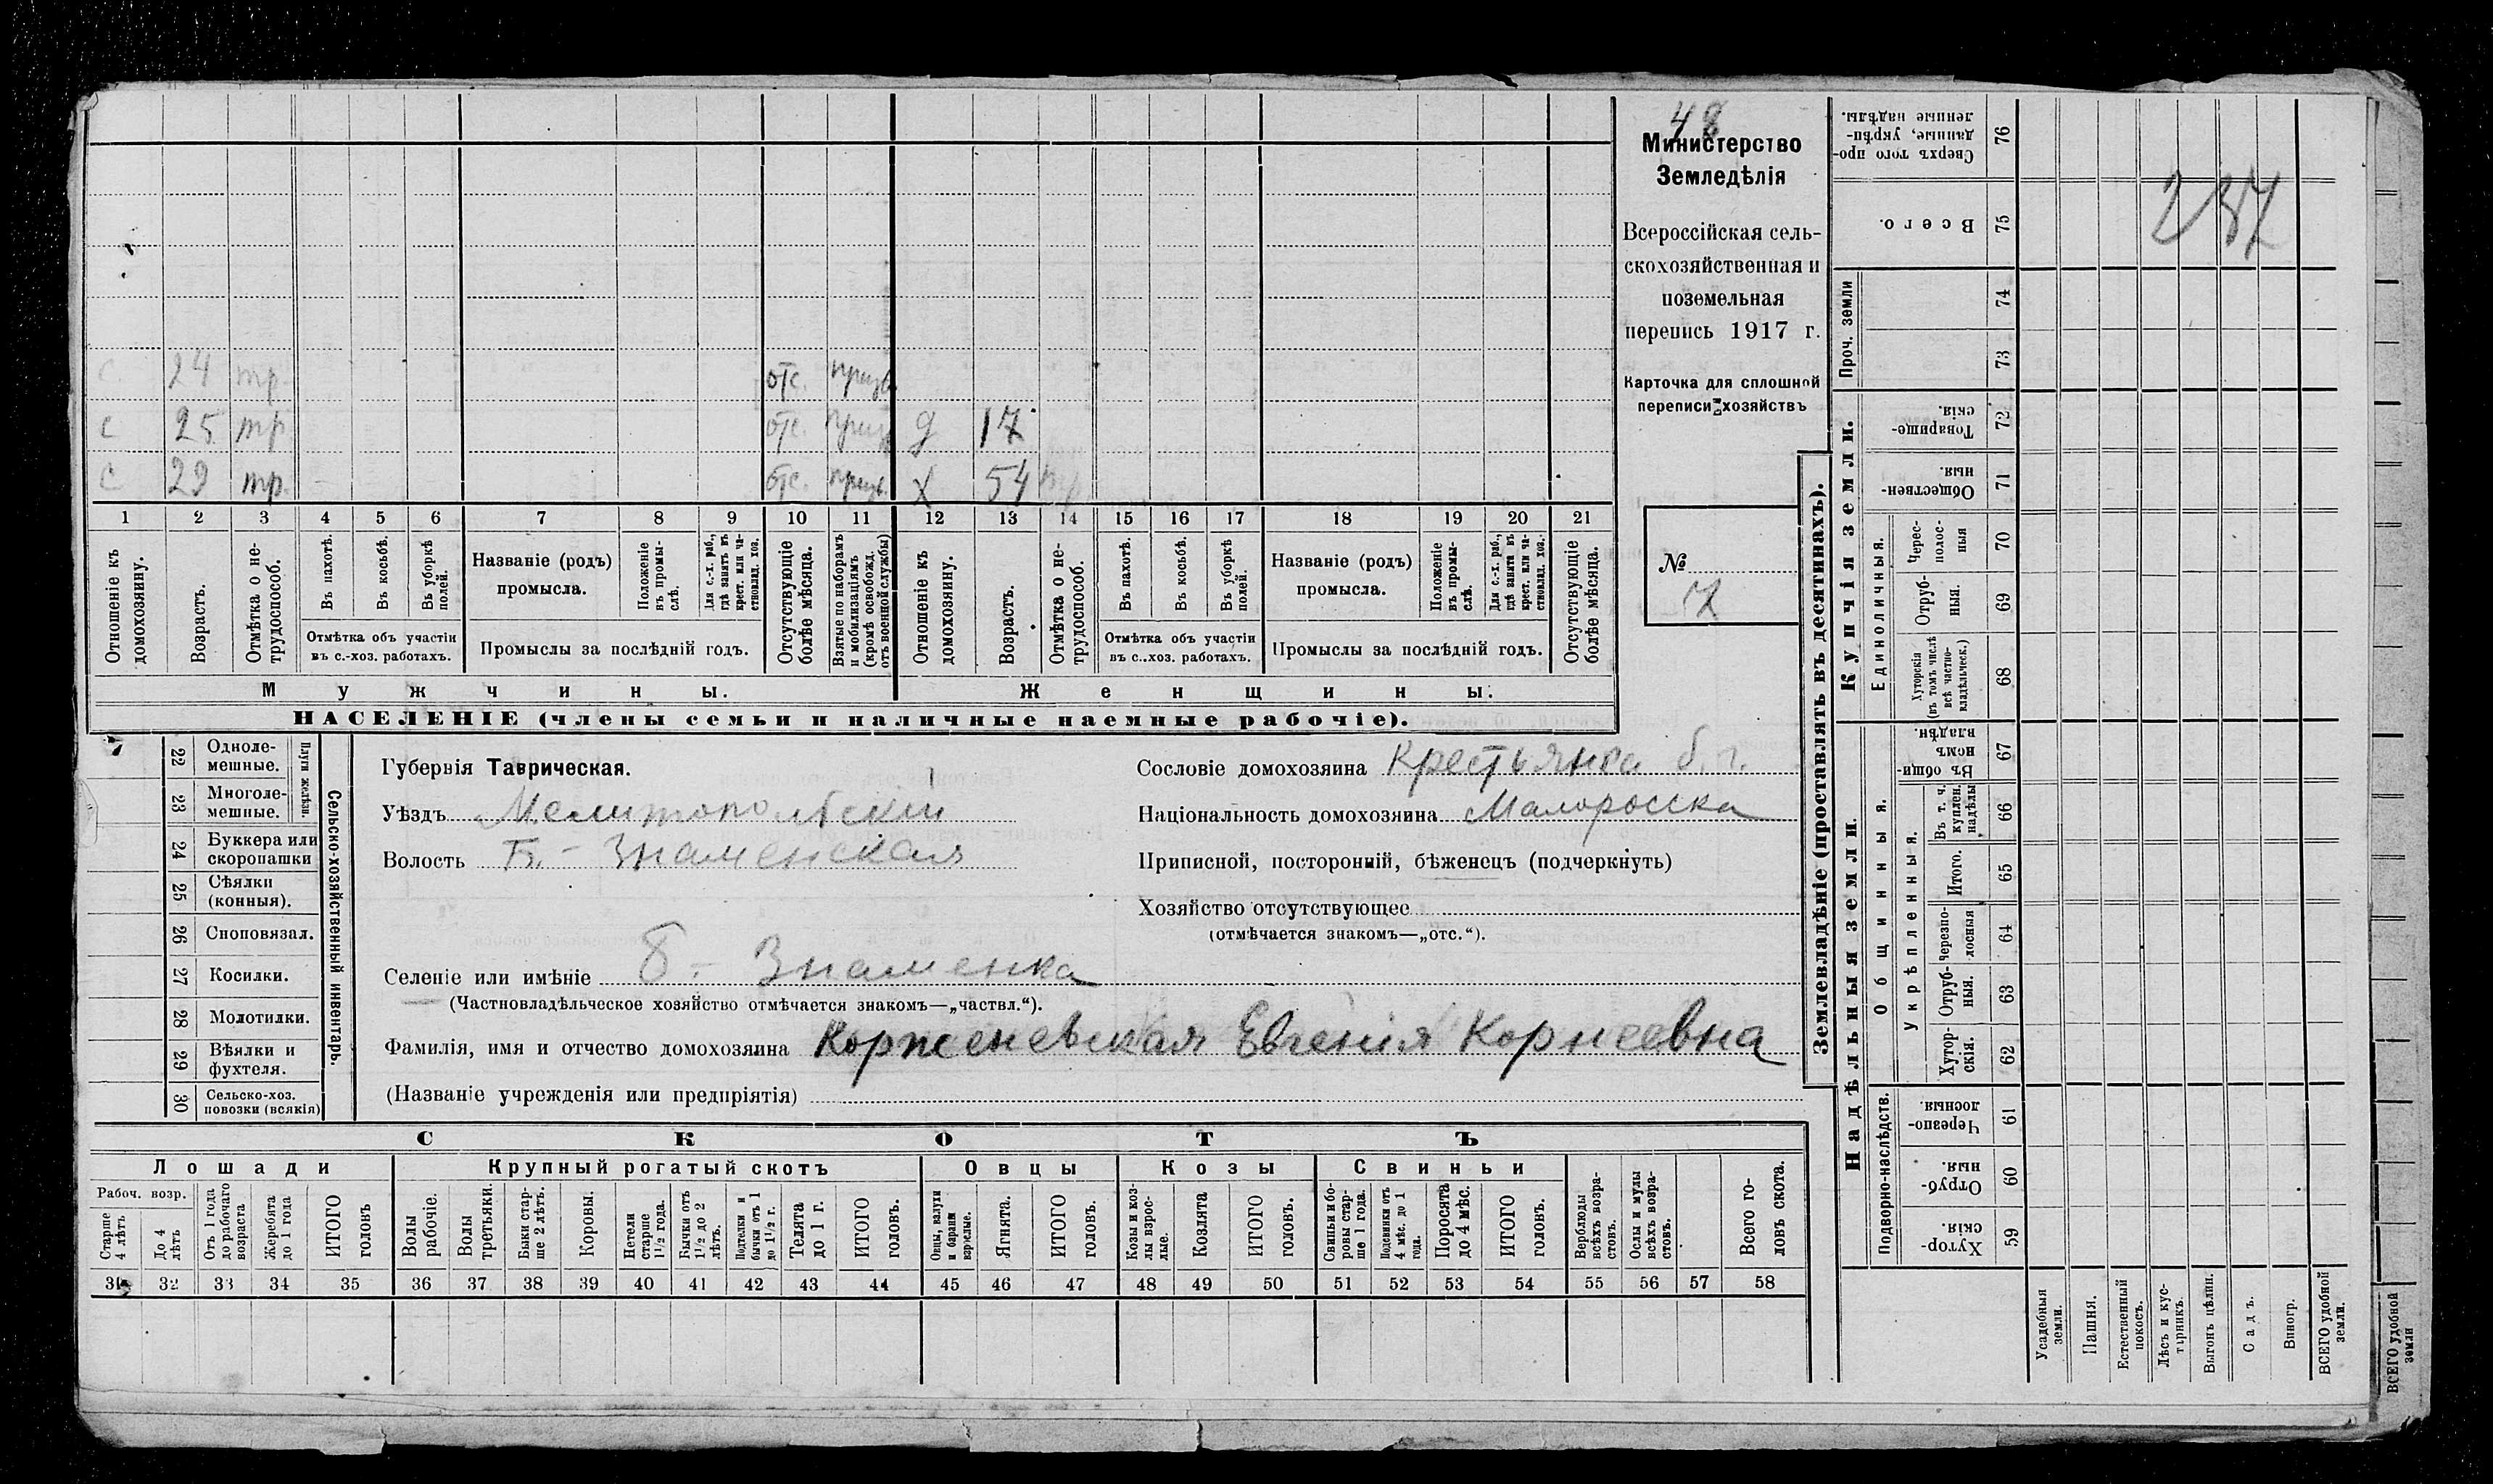 48
Министерство
Земледѣлія
Всероссійская сель-
скохозяйственная и
поземельная
перепись 1917 г.
Карточка для сплошной
переписи хозяйствъ
№
7
с 24 тр. отс. призв.
с 25 тр. отс. призв. д 17
с 29 тр. отс. призв. х 54 тр.
1 2 3 4 5 6 7 8 9 10 11 12 13 14 15 16 17 18 19 20 21
Отношеніе къ домохозяину.
Возрастъ.
Отмѣтка о не-трудоспособ.
Въ пахотѣ.
Въ косьбѣ.
Въ уборкѣ полей.
Отмѣтка объ участіи
въ с.-хоз. работахъ.
Названіе (родъ)
промысла.
Положеніе въ промы-слѣ.
Для с.-х. раб., гдѣ занятъ въ крест. или ча-стновлад. хоз.
Промыслы за послѣдній годъ.
Отсутствующіе болѣе мѣсяца.
Взятые по наборамъ и мобилизаціямъ (кромѣ освобожд. отъ военной службы)
Отношеніе къ домохозяину.
Возрастъ.
Отмѣтка о не-трудоспособ.
Въ пахотѣ.
Въ косьбѣ.
Въ уборкѣ полей.
Отмѣтка объ участіи
въ с..хоз. работахъ.
Названіе (родъ)
промысла.
Положеніе въ промы-слѣ.
Для с.-х. раб., гдѣ занята въ крест. или ча-стновлад. хоз.
Промыслы за послѣдній годъ.
Отсутствующіе болѣе мѣсяца.
Мужчины.
Женщины.
НАСЕЛЕНІЕ (члены семьи и наличные наемные рабочіе).
Сельско-хозяйственный инвентарь.
Плуги желѣзн.
22 Одноле-мешные.
23 Многоле-мешные.
24 Буккера или скоропашки
25 Сѣялки (конныя).
26 Сноповязал.
27 Косилки.
28 Молотилки.
29 Вѣялки и фухтеля.
30 Сельско-хоз. повозки (всякія)
Губернія Таврическая.
Уѣздъ Мелитопольскій
Волость Б.-Знаменская
Селеніе или имѣніе Б.-Знаменка
(Частновладѣльческое хозяйство отмѣчается знакомъ—„частвл.“).
Сословіе домохозяина Крестьянка б. г.
Національность домохозяина Малоросска
Приписной, посторонній, бѣженецъ (подчеркнуть)
Хозяйство отсутствующее
(отмѣчается знакомъ—„отс.“).
Фамилія, имя и отчество домохозяина Корженевская Евгенія Корнеевна
(Названіе учрежденія или предпріятія)
СКОТЪ
Лошади
Крупный рогатый скотъ
Овцы
Козы
Свиньи
Рабоч. возр.
Старше 4 лѣтъ
До 4 лѣтъ
Отъ 1 года до рабочаго возраста
Жеребята до 1 года
ИТОГО головъ
Волы рабочіе.
Волы третьяки.
Быки стар-ше 2 лѣтъ.
Коровы.
Нетели старше 1½ года.
Бычки отъ 1½ до 2 лѣтъ.
Подтелки и бычки отъ 1 до 1½ г.
Телята до 1 г.
ИТОГО головъ.
Овцы, валухи и бараны взрослые.
Ягнята.
ИТОГО головъ.
Козы и коз-лы взрос-лые.
Козлята
ИТОГО головъ.
Свиньи и бо-ровы стар-ше 1 года.
Подсвинки отъ 4 мѣс. до 1 года.
Поросята до 4 мѣс.
ИТОГО головъ.
Верблюды всѣхъ возра-стовъ.
Ослы и мулы всѣхъ возра-стовъ.
Всего го-ловъ скота.
31 32 33 34 35 36 37 38 39 40 41 42 43 44 45 46 47 48 49 50 51 52 53 54 55 56 57 58
Землевладѣніе (проставлять въ десятинахъ).
Купчія земли.
Надѣльныя земли.
Сверхъ того про-данные, укрѣп-ленные надѣлы. 76
Всего. 75
Проч. земли
74
73
Товарище-скія. 72
Обществен-ныя. 71
Единоличныя.
Черес-полос-ныя 70
Отруб-ныя. 69
Хуторскія (въ томъ числѣ всѣ частно-владѣльческ.) 68
Общинныя.
Въ общин-номъ владѣн. 67
Укрѣпленныя.
Въ т. ч. куплен. надѣлы 66
Итого. 65
Черезпо-лосныя 64
Отруб-ныя. 63
Хутор-скія. 62
Подворно-наслѣдств.
Черезпо-лосныя. 61
Отруб-ныя. 60
Хутор-скія. 59
Усадебныя земли.
Пашня.
Естественный покосъ.
Лѣсъ и кус-тарникъ.
Выгонъ цѣлин.
Садъ.
Виногр.
ВСЕГО удобной земли.
ВСЕГО удобной земли